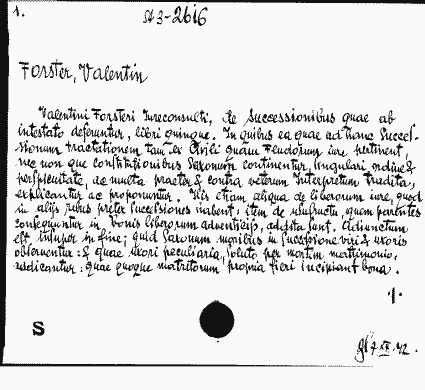 1.
St 3-2616
Forster, Valentin
Valentini Forsteri Iureconsulti, de Successionibus quae ab
intestato deferuntur, libri quinque. In quibus ea quae ad hanc Succes-
sionum tractationem tam ex Civili quam Feudorum iure pertinent,
nec non quae constitutionibus Saxonum continentur, singulari ordine &
perspicuitate, ac multa praeter & contra veterum Interpretum tradita,
explicantur ac proponuntur. His etiam aliqua de liberorum iure, quod
in aliis rebus preter successiones habent: item de usufructu, quem parentes
consequuntur in bonis liberorum adventitiis, addita sunt. Adiunctum
est insuper in fine; quid Saxonum moribus in successione viri & uxoris
observetur: & quae uxori peculiaria, soluto per mortem matrimonio,
vindicantur: quae quoque maritorum propria fieri incipiant bona.
.|.
S
7.XI.42.